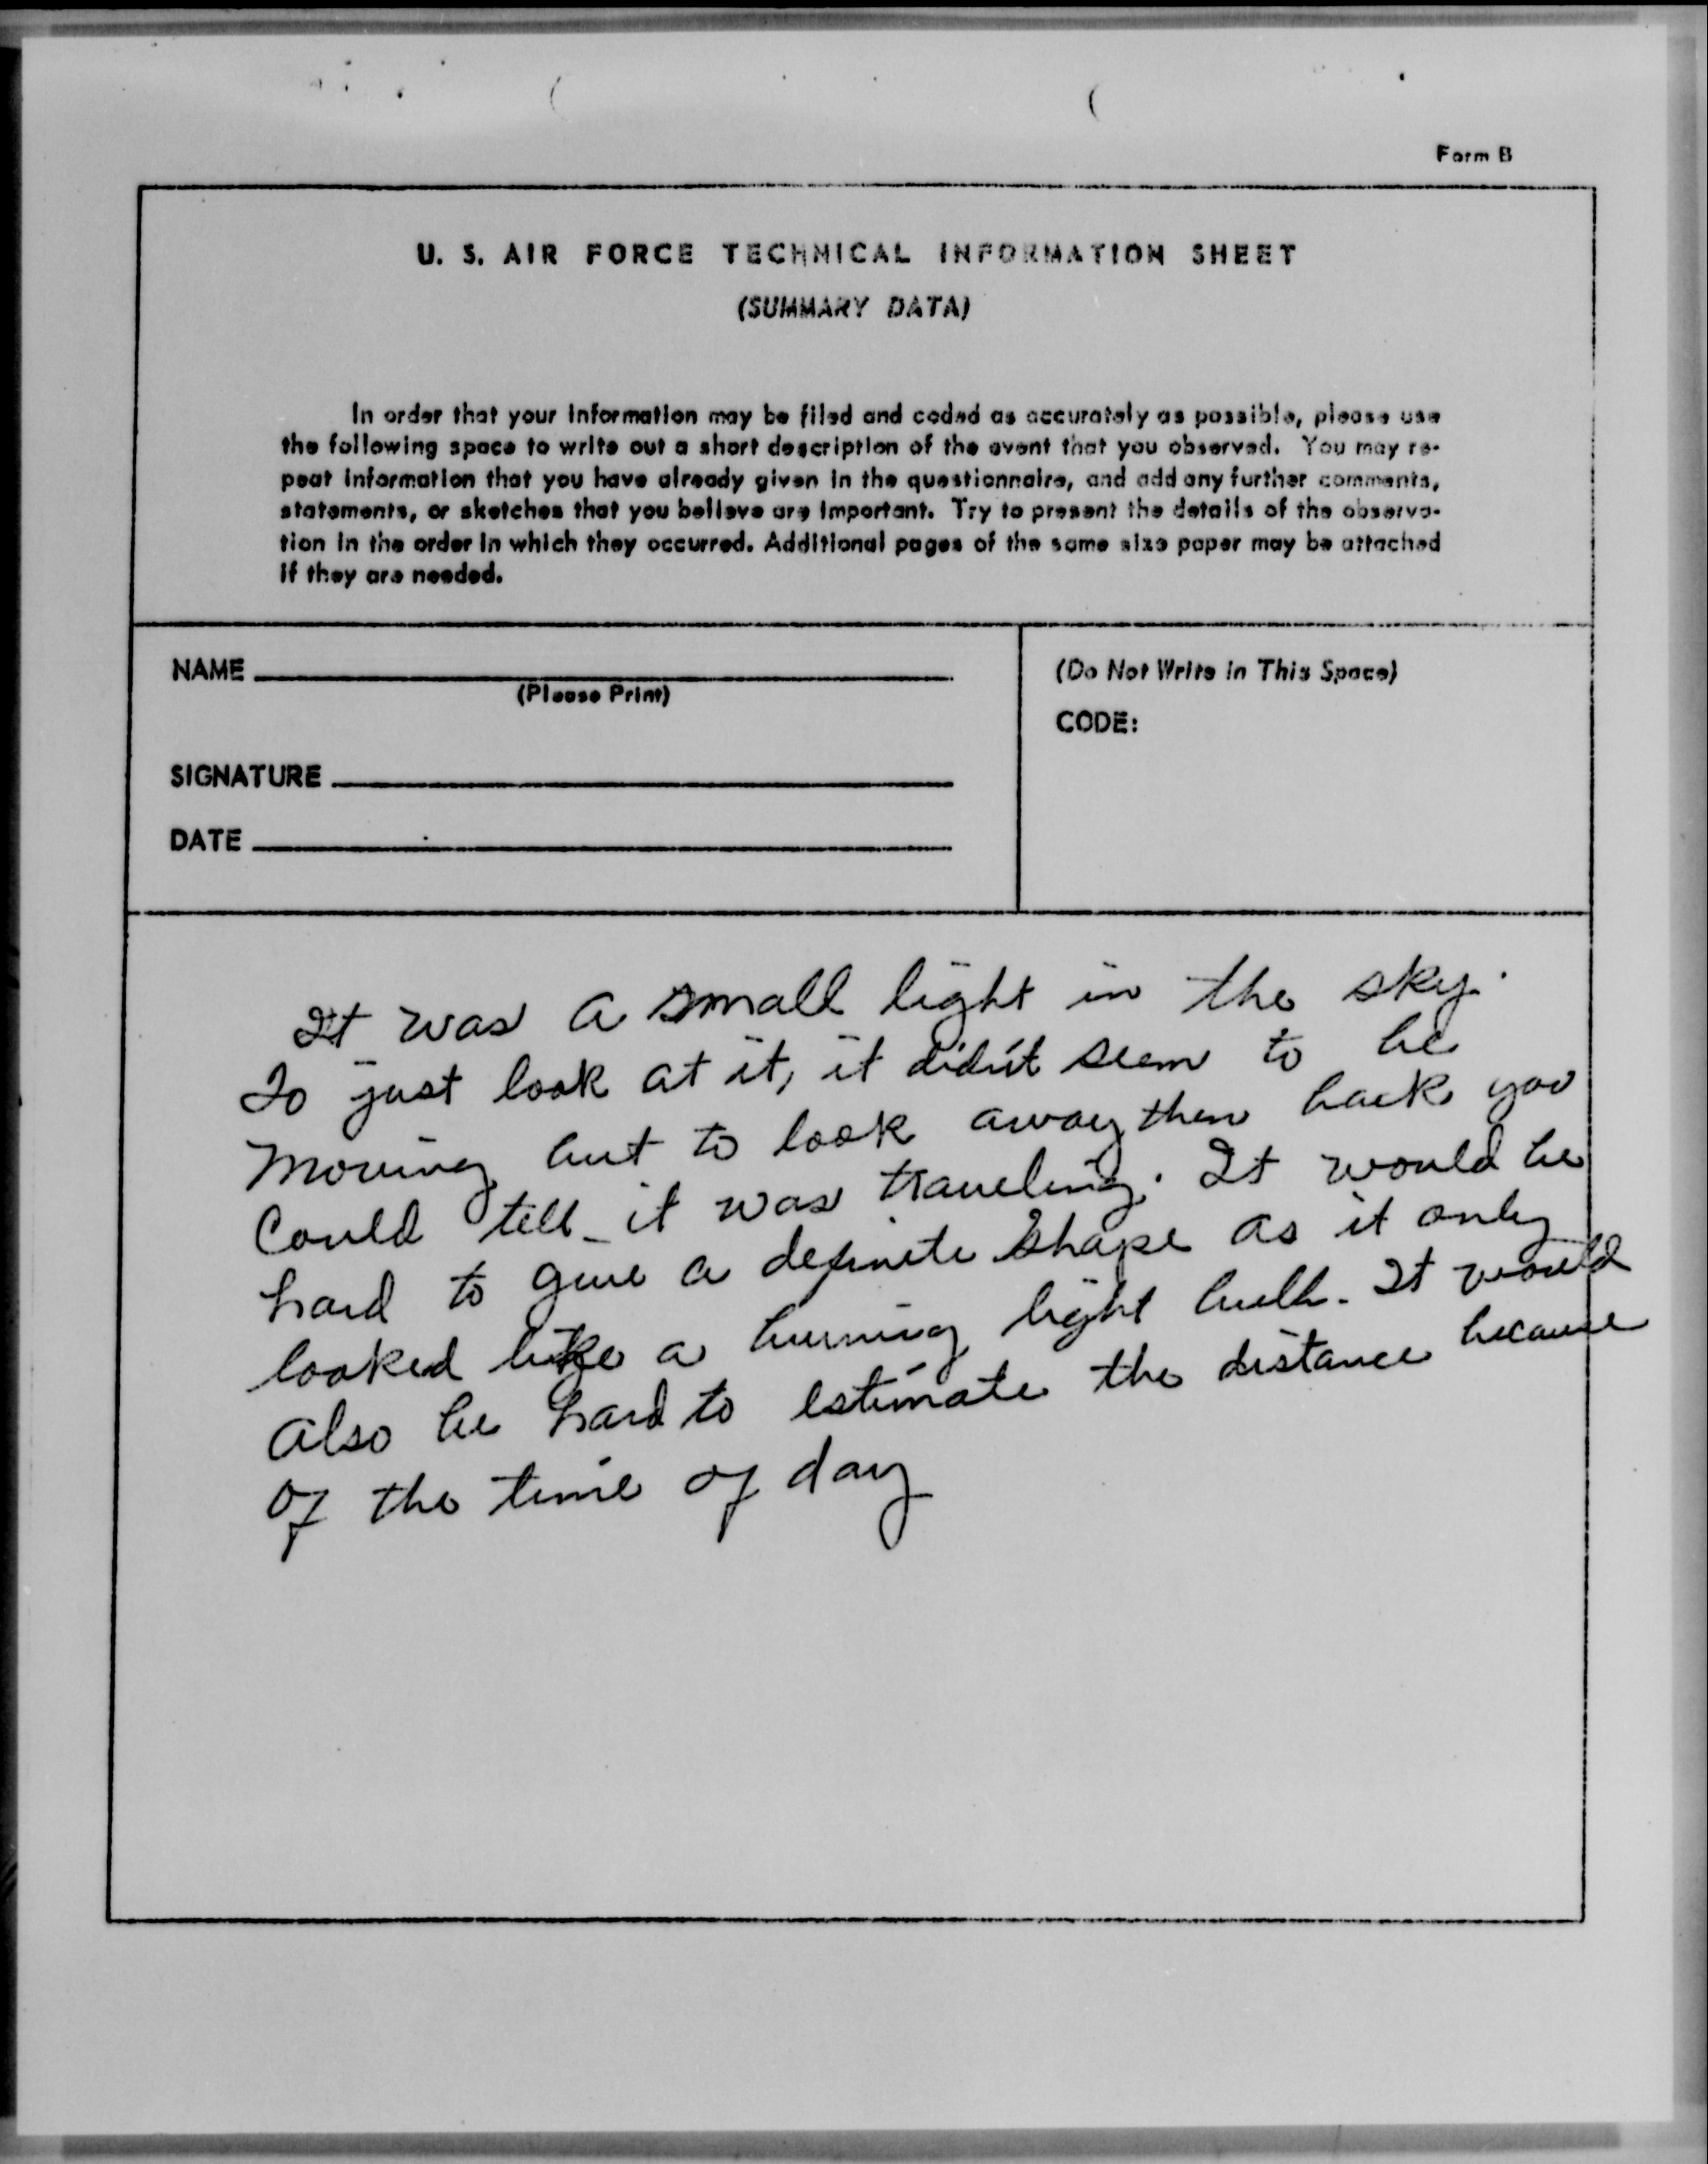 Form B
U. S. AIR FORCE TECHNICAL INFORMATION SHEET
(SUMMARY DATA)
In order that your information may be filed and coded as accurately as possible, please use
the following space to write out a short description of the event that you observed. You may re-
peat information that you have already given in the questionnaire, and add any further comments,
statements, or sketches that you believe are important. Try to present the details of the observa-
tion in the order in which they occurred. Additional pages of the same size paper may be attached
if they are needed.
NAME
(Please Print)
SIGNATURE
DATE
(Do Not Write in This Space)
CODE:
It was a small light in the sky.
To just look at it, it didn't seem to be
moving but to look away then back you
could tell it was traveling. It would be
hard to give a definite shape as it only
looked like a burning light bulb. It would
also be hard to estimate the distance because
of the time of day